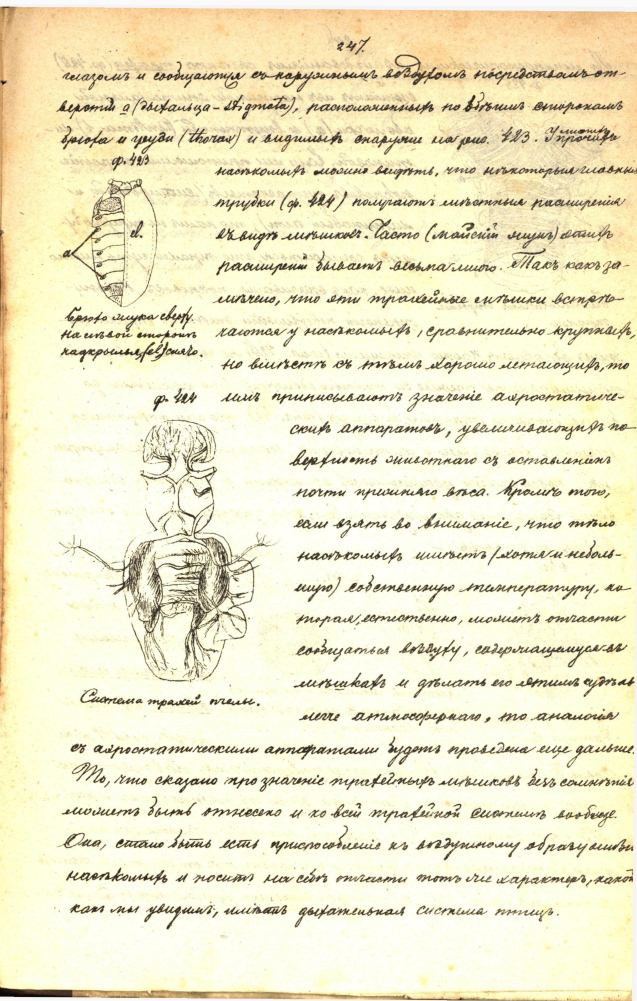 247.
глазомъ и сообщаются съ наружнымъ воздухомъ посредствомъ от-
верстій a (дыхальца - stigmata), расположенныхъ по обѣимъ сторонамъ
брюха и груди (thorax) и видимыхъ снаружи на рис. 423. У прочихъ
ф. 423
насѣкомыхъ можно видѣть, что нѣкоторыя главныя
трубки (ф. 424) получаютъ мѣстныя расширенія
въ видѣ мѣшковъ. Часто (майскій жукъ) этихъ
расширеній бываетъ весьма много. Такъ какъ за-
мѣчено, что эти трахейные мѣшки встрѣ-
чаются у насѣкомыхъ, сравнительно крупныхъ,
но вмѣстѣ съ тѣмъ хорошо летающихъ, то
имъ приписываютъ значеніе аэростатиче-
скихъ аппаратовъ, увеличивающихъ по-
верхность животнаго съ оставленіемъ
почти прежняго вѣса. Кромѣ того,
если взять во вниманіе, что тѣло
насѣкомыхъ имѣетъ (хотя и неболь-
шую) собственную температуру, ко-
торая, естественно, можетъ отчасти
сообщаться воздуху, содержащемуся въ
мѣшкахъ и дѣлать его этимъ
легче атмосфернаго, то аналогія
a
el.
Брюхо жука сверху.
На лѣвой сторонѣ
надкрылья (el) снято.
ф. 424
Система трахей пчелы.
съ аэростатическими аппаратами будетъ проведена еще дальше.
То, что сказано про значеніе трахейныхъ мѣшковъ безъ сомнѣнія
можетъ быть отнесено и ко всей трахейной системѣ вообще.
Она, стало быть есть приспособленіе къ воздушному образу жизни
насѣкомыхъ и носитъ на себѣ отчасти тотъ же характеръ, какой
какъ мы увидимъ, имѣетъ дыхательная система птицъ.